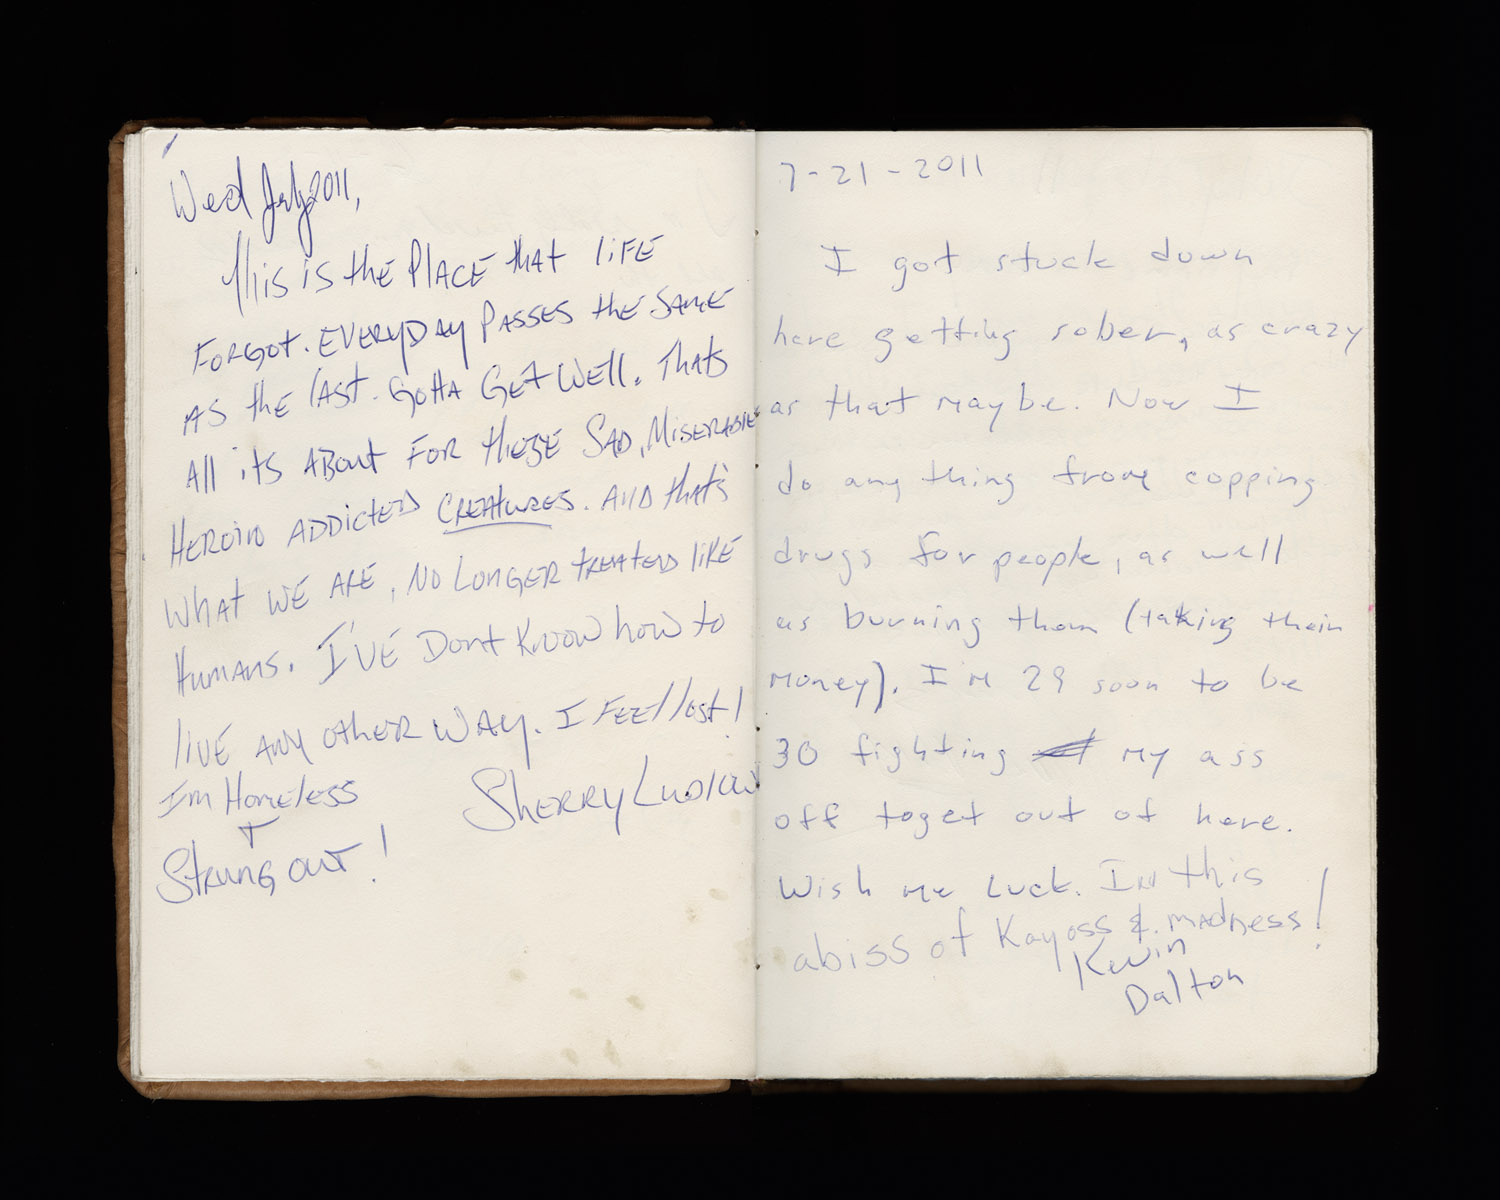 Wed July 2011,
This is the Place that life
Forgot. Everyday Passes the same
as the last. Gotta Get Well. Thats
all its about for these Sad, Miserable
Heroin addicted creatures. And that's
what we are, no longer treated like
Humans. I've Dont Know how to
live any other way. I feel lost!
I'm Homeless
+
Strung out!
Sherry Ludlow
7-21-2011
I got stuck down
here getting sober, as crazy
as that maybe. Now I
do any thing from copping
drugs for people, as well
as burning them (taking their
money). I'm 29 soon to be
30 fighting my ass
off toget out of here.
Wish me Luck. In this
abiss of Kayoss &. madness!
Kevin
Dalton